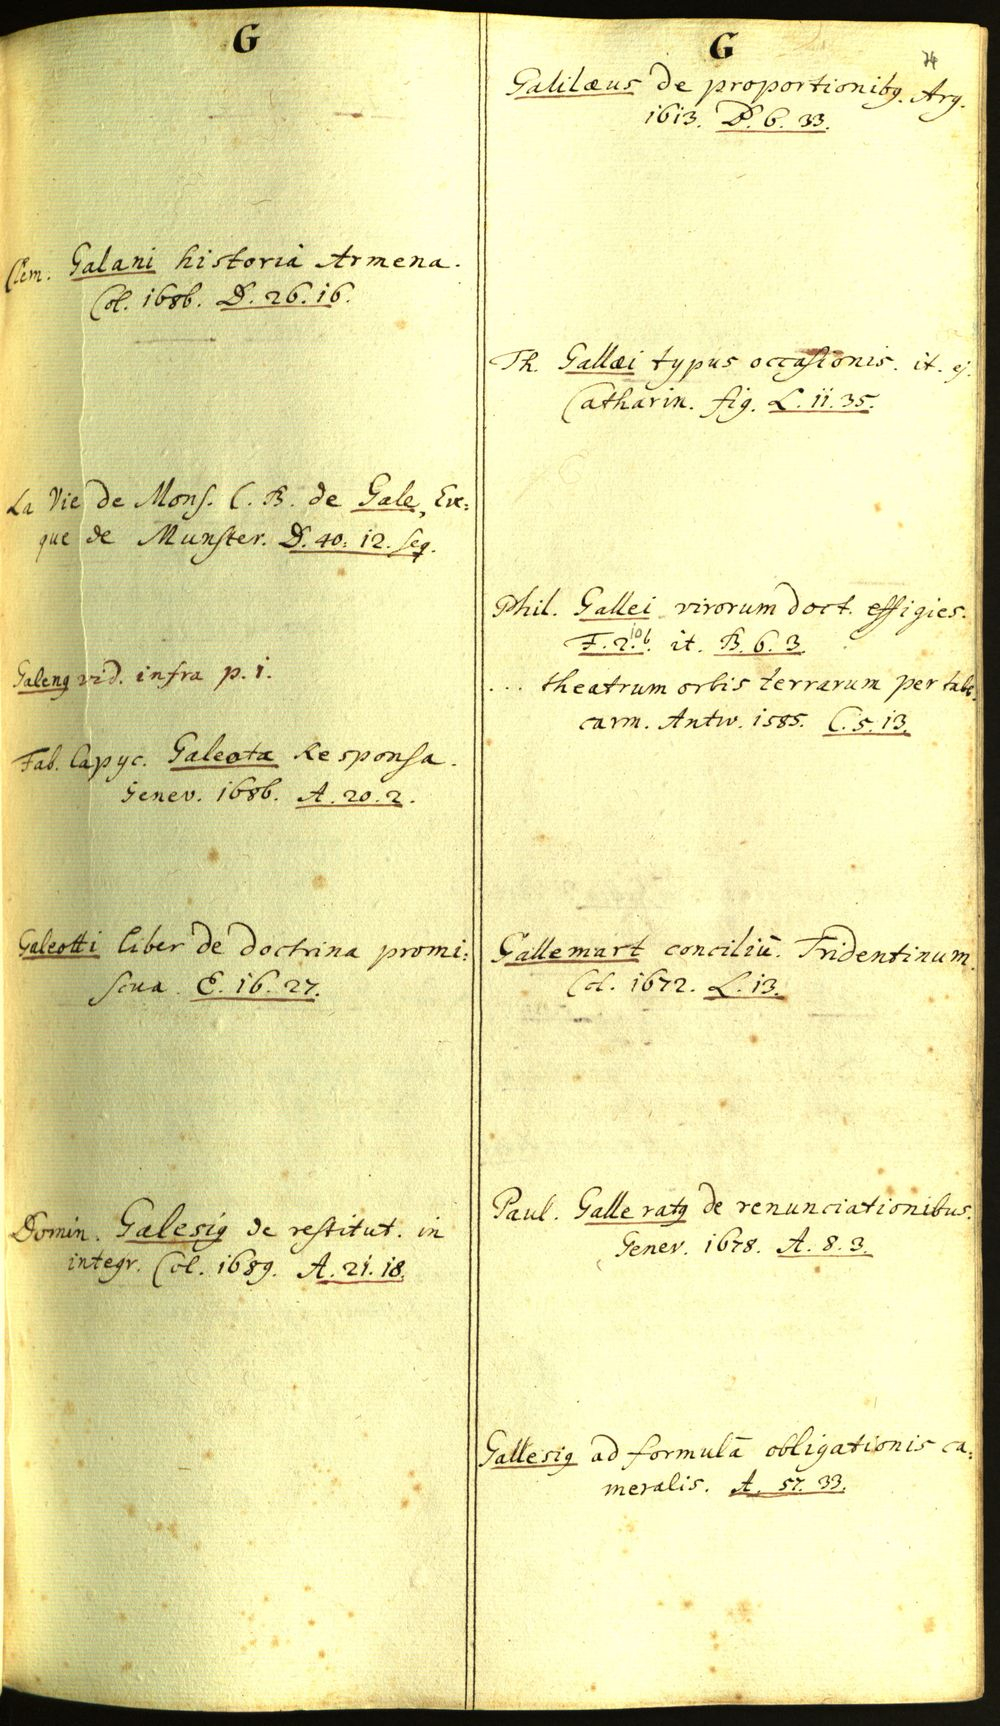 G
Clem. Galani historia Armena.
Col. 1686. D. 26. 16.
La Vie de Mons. C. B. de Gale, Eve:
que de Munster. D. 40. 12. seq.
Galeng vid. infra p. 1.
Fab. Capyc. Galeota Responsa.
Genev. 1686. A. 20. 2.
Galeotti liber de doctrina promi:
scua. E. 16. 27.
Domin. Galesig de restitut. in
integr. Col. 1689. A. 21. 18.
G
74
Galilæus de proportionibg. Arg.
1613. D. 6. 33.
Th. Gallæi typus occasionis. it. ej.
Catharin. fig. L. 11. 35.
Phil. Gallei virorum doct. effigies.
F. 2. 10b. it. B. 6. 3.
... theatrum orbis terrarum per tab.
carm. Antw. 1585. C. 5. 13.
Gallemart conciliū. Tridentinum.
Col. 1672. L. 13.
Paul. Galleratg de renunciationibus.
Genev. 1678. A. 8. 3.
Gallesig ad formulā obligationis ca:
meralis. A. 57. 33.